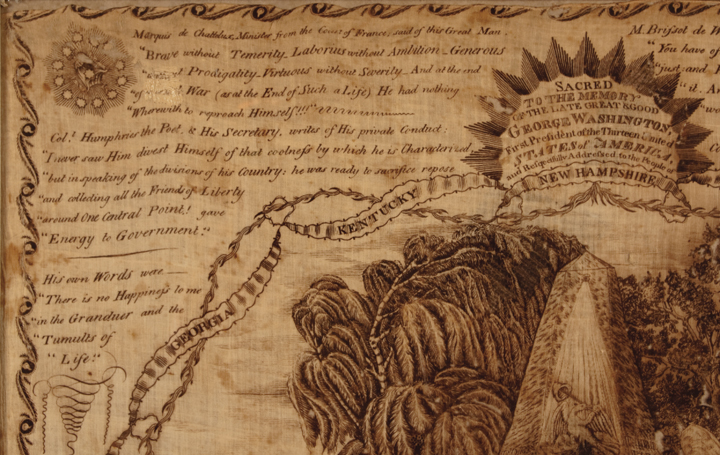 Marquis de Chattelux, Minister from the Court of France, said of this Great Man
"Brave without Temerity_Laborius without Ambition_Generous
"without Prodigality_Virtuous without Severity_And at the end
War (as at the End of Such a Life) He had nothing
"Wherewith to reproach Himself!!!"
Col.! Humphries the Poet, & His Secretary, writes of His private Conduct;
"I never saw Him divest Himself of that coolness by which he is Characterized
"but in speaking of the divisions of his Country: he was ready to sacrifice repose
"and collecting all the Friends of Liberty
"around One Central Point! gave
"Energy to Government."
His own Words were
"There is no Happiness to me
"in the Granduer and the
"Tumults of
"Life."
GEORGIA
KENTUCKY
SACRED
TO THE MEMORY
OF THE LATE GREAT & GOOD
GEORGE WASHINGTON,
First President of the Thirteen United
STATES of AMERICA.
and Respectfully Addressed to the People of
NEW HAMPSHIRE
M. Brissot de W
"You have of
"just and